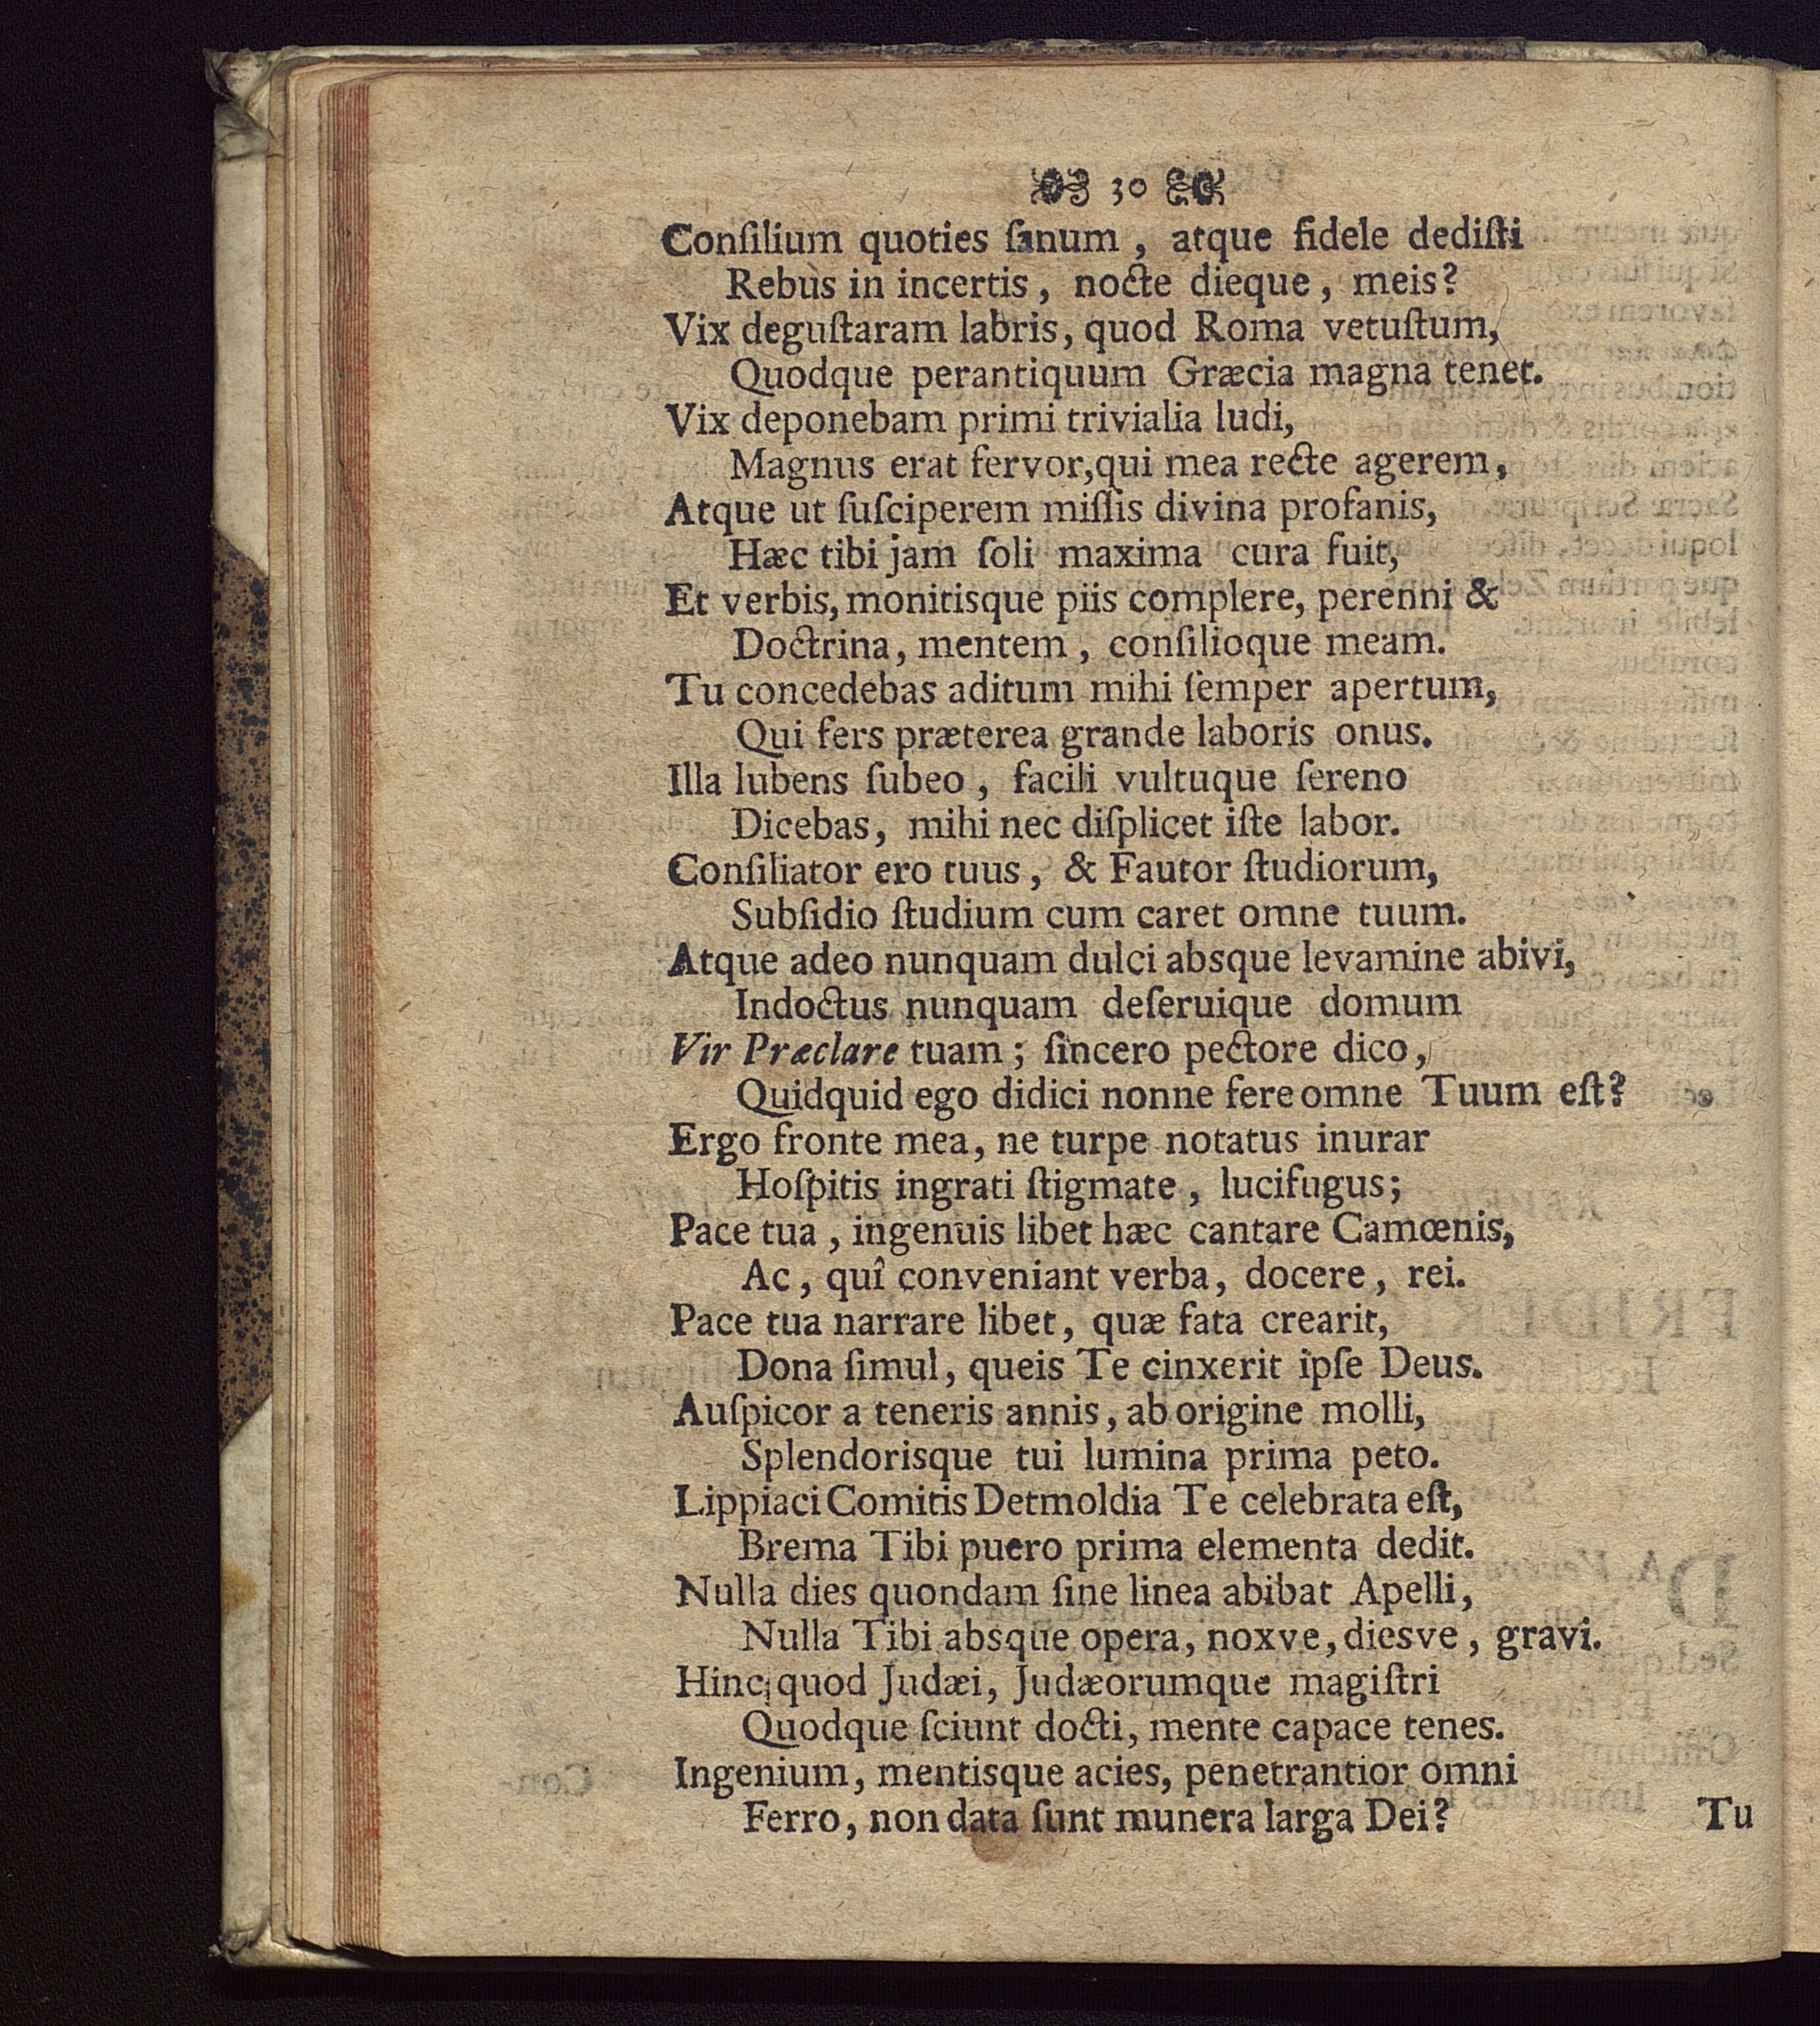 30
Conſilium quoties ſanum, atque fidele dediſti
Rebus in incertis, nocte dieque, meis?
Vix deguſtaram labris, quod Roma vetuſtum,
Quodque perantiquum Græcia magna tenet.
Vix deponebam primi trivialia ludi,
Magnus erat fervor, qui mea recte agerem,
Atque ut ſuſciperem miſſis divina profanis,
Hæc tibi jam ſoli maxima cura fuit,
Et verbis, monitisque piis complere, perenni &
Doctrina, mentem, conſilioque meam.
Tu concedebas aditum mihi ſemper apertum,
Qui fers præterea grande laboris onus.
Illa lubens ſubeo, facili vultuque ſereno
Dicebas, mihi nec diſplicet iſte labor.
Conſiliator ero tuus, & Fautor ſtudiorum,
Subſidio ſtudium cum caret omne tuum.
Atque adeo nunquam dulci absque levamine abivi,
Indoctus nunquam deſeruique domum
Vir Præclare tuam; ſincero pectore dico,
Quidquid ego didici nonne fere omne Tuum eſt?
Ergo fronte mea, ne turpe notatus inurar
Hoſpitis ingrati ſtigmate, lucifugus;
Pace tua, ingenuis libet hæc cantare Camœnis,
Ac, quî conveniant verba, docere, rei.
Pace tua narrare libet, quæ fata crearit,
Dona ſimul, queis Te cinxerit ipſe Deus.
Auſpicor a teneris annis, ab origine molli,
Splendorisque tui lumina prima peto.
Lippiaci Comitis Detmoldia Te celebrata eſt,
Brema Tibi puero prima elementa dedit.
Nulla dies quondam ſine linea abibat Apelli,
Nulla Tibi absque opera, noxve, diesve, gravi.
Hinc quod Judæi, Judæorumque magiſtri
Quodque ſciunt docti, mente capace tenes.
Ingenium, mentisque acies, penetrantior omni
Ferro, non data ſunt munera larga Dei?
Tu